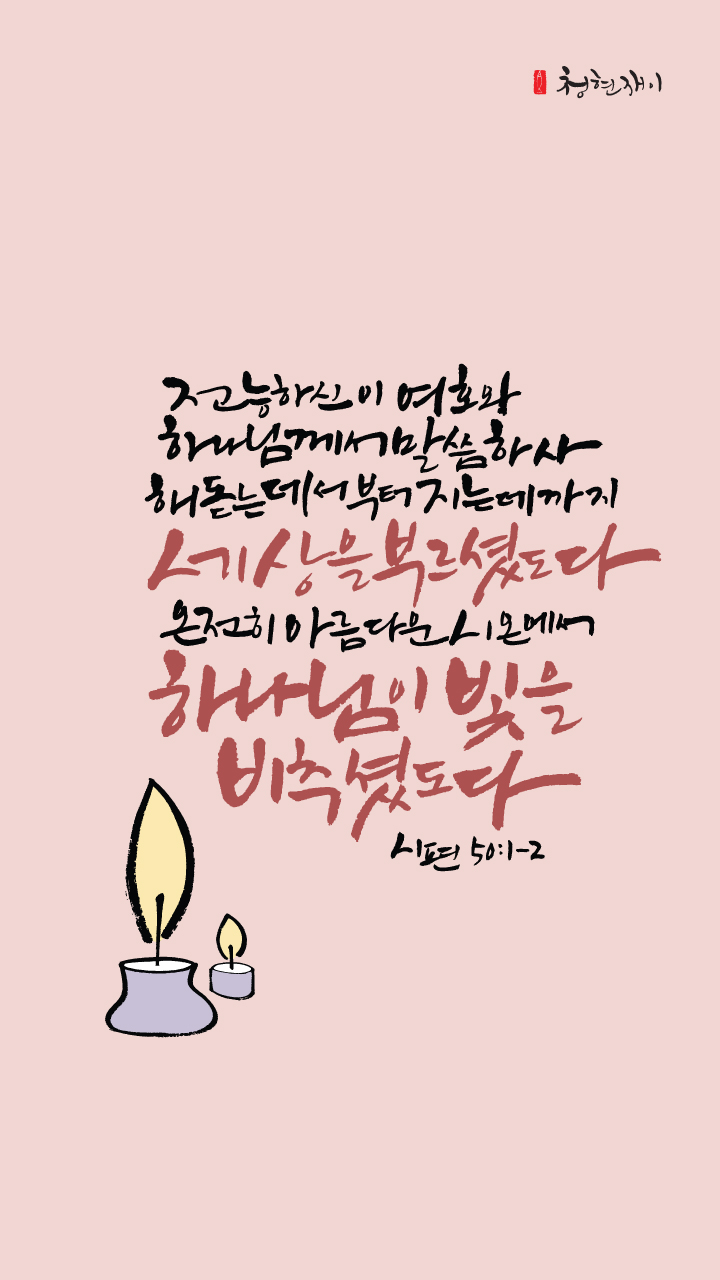 청현재이
전능하신 이 여호와
하나님께서 말씀하사
해 돋는 데서부터 지는 데까지
세상을 부르셨도다
온전히 아름다운 시온에서
하나님이 빛을
비추셨도다
시편 50:1-2